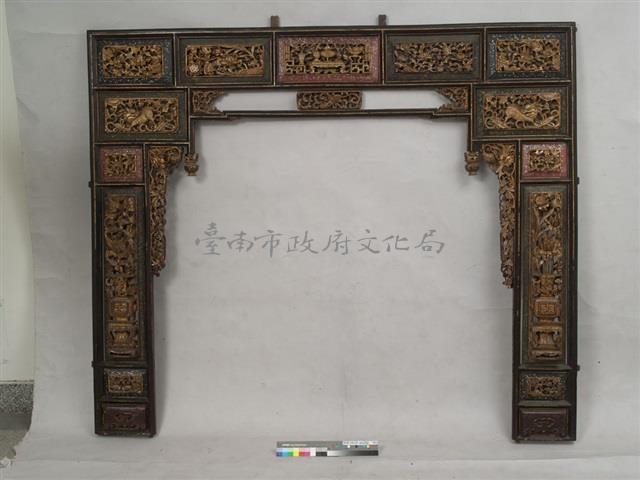 臺南市政府文化局